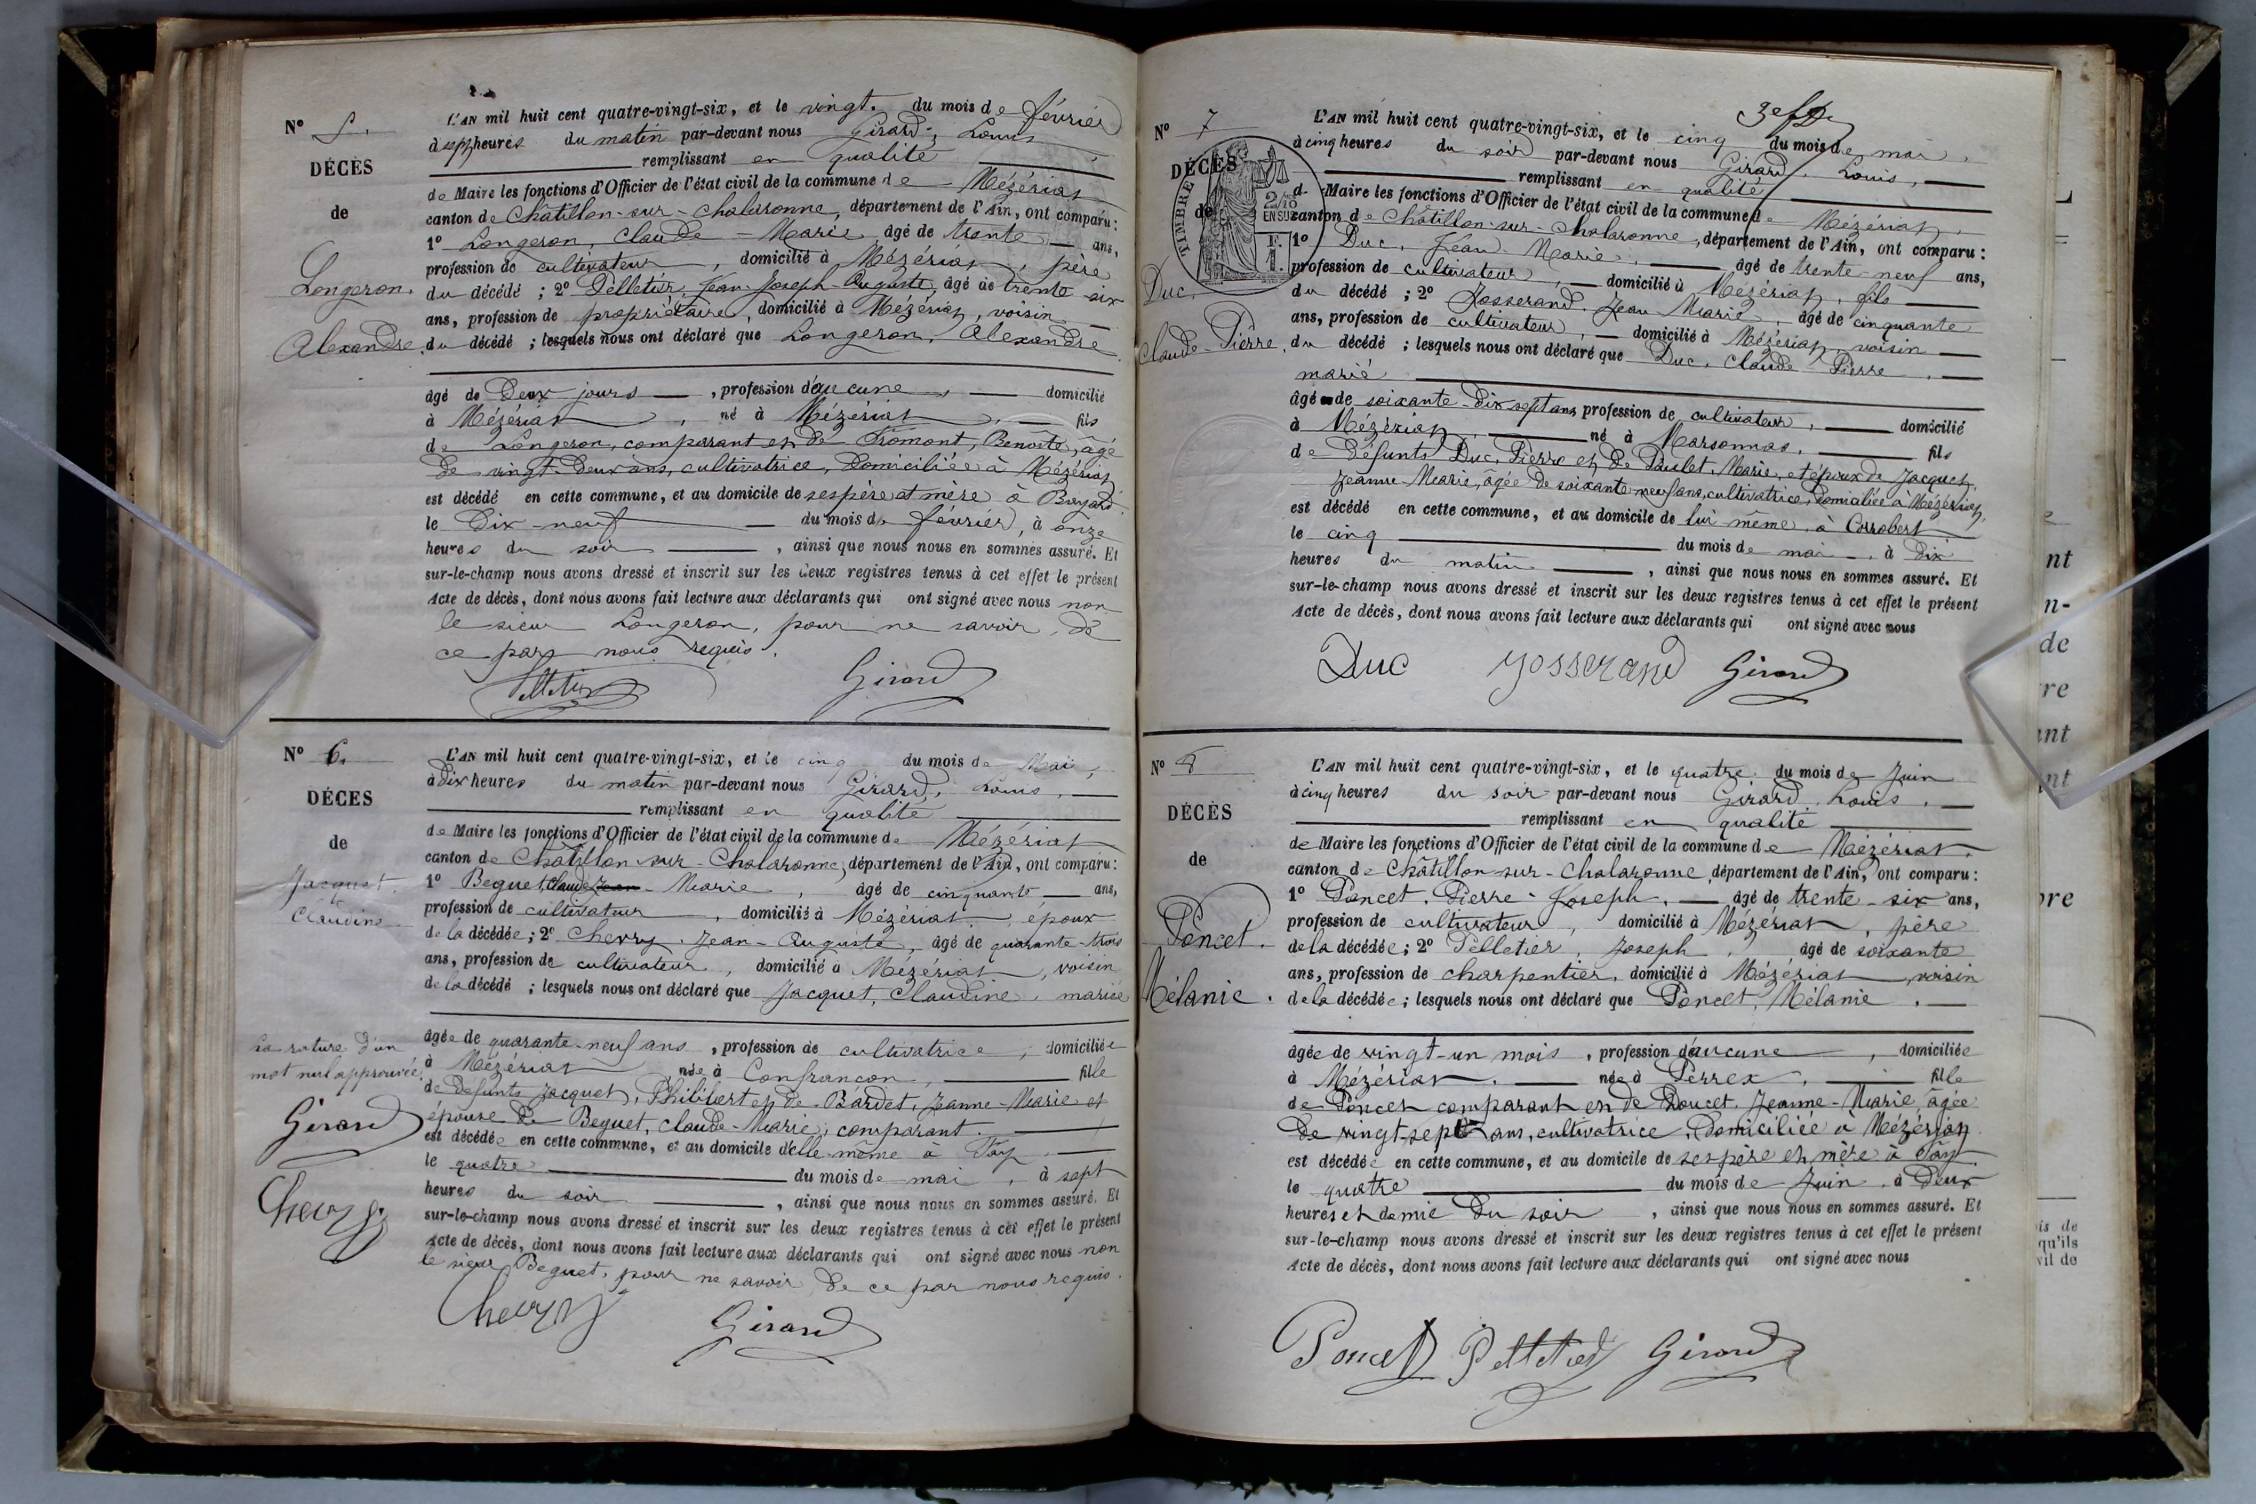 N° 5.
DÉCÈS
de
Longeron.
Alexandre.
L'AN mil huit cent quatre-vingt-six, et le vingt. du mois de février
à sept heures du matin par-devant nous Girard, Louis
remplissant en qualité
de Maire les fonctions d'Officier de l'état civil de la commune de Mézériat
canton de Châtillon-sur-Chalaronne, département de l'Ain, ont comparu:
1° Longeron, Claude-Marie âgé de trente ans,
profession de cultivateur, domicilié à Mézériat, père
du décédé ; 2° Pelletier, Jean-Joseph-Auguste, âgé de trente six
ans, profession de propriétaire, domicilié à Mézériat, voisin
du décédé ; lesquels nous ont déclaré que Longeron, Alexandre
âgé de Deux jours, profession d'aucune, domicilié
à Mézériat, né à Mézériat, fils
de Longeron, comparant et de Fromont, Benoîte, âgé
de vingt-deux ans, cultivatrice, domiciliée à Mézériat
est décédé en cette commune, et au domicile de ses père et mère à Bayard
le Dix-neuf du mois de février, à onze
heures du soir, ainsi que nous nous en sommes assuré. Et
sur-le-champ nous avons dressé et inscrit sur les deux registres tenus à cet effet le présent
Acte de décès, dont nous avons fait lecture aux déclarants qui ont signé avec nous non
le sieur Longeron, pour ne savoir, de
ce par nous requis.
Pelletier Girard
N° 6.
DÉCES
de
Jacquet.
Claudine
La rature d'un
mot nul approuvée.
Girard
Chevry
L'AN mil huit cent quatre-vingt-six, et le cinq du mois de Mai,
à dix heures du matin par-devant nous Girard, Louis,
remplissant en qualité
de Maire les fonctions d'Officier de l'état civil de la commune de Mézériat
canton de Châtillon-sur-Chalaronne, département de l'Ain, ont comparu:
1° Beguet, Claude Jean-Marie, âgé de cinquante ans,
profession de cultivateur, domicilié à Mézériat, époux
de la décédée; 2° Chevry, Jean-Auguste, âgé de quarante-trois
ans, profession de cultivateur, domicilié à Mézériat, voisin
de la décédé ; lesquels nous ont déclaré que Jacquet, Claudine, mariée
âgée de quarante-neuf ans, profession de cultivatrice, domiciliée
à Mézériat, née à Confrançon, fille
de défunts Jacquet, Philibert et de Bardet, Jeanne-Marie et
épouse de Beguet, Claude-Marie, comparant.
est décédée en cette commune, et au domicile d'elle-même à Táy
le quatre du mois de mai, à sept
heures du soir, ainsi que nous nous en sommes assuré. Et
sur-le-champ nous avons dressé et inscrit sur les deux registres tenus à cet effet le présent
Acte de décès, dont nous avons fait lecture aux déclarants qui ont signé avec nous non
le sieur Beguet, pour ne savoir de ce par nous requis.
Chevry Girard
N° 7
DÉCÈS
de
TIMBRE
2/10
EN SUS
F.
1.
Duc,
Claude-Pierre.
L'AN mil huit cent quatre-vingt-six, et le cinq du mois de mai,
à cinq heures du soir par-devant nous Girard, Louis,
remplissant en qualité
de Maire les fonctions d'Officier de l'état civil de la commune de Mézériat,
canton de Châtillon-sur-Chalaronne, département de l'Ain, ont comparu:
1° Duc, Jean-Marie, âgé de trente-neuf ans,
profession de cultivateur, domicilié à Mézériat, fils
du décédé ; 2° Josserand, Jean Marie, âgé de cinquante
ans, profession de cultivateur, domicilié à Mézériat, voisin
du décédé ; lesquels nous ont déclaré que Duc, Claude Pierre,
marié
âgé de soixante-dix sept ans profession de cultivateur, domicilié
à Mézériat, né à Marsonnas, fils
de défunts Duc, Pierre et de Paulet, Marie, et époux de Jacquet,
Jeanne-Marie, âgée de soixante neuf ans, cultivatrice, domiciliée à Mézériat,
est décédé en cette commune, et au domicile de lui-même, à Corrobert
le cinq du mois de mai, à dix
heures du matin, ainsi que nous nous en sommes assuré. Et
sur-le-champ nous avons dressé et inscrit sur les deux registres tenus à cet effet le présent
Acte de décès, dont nous avons fait lecture aux déclarants qui ont signé avec nous
Duc Josserand Girard
N° 8
DÉCÈS
de
Poncet.
Mélanie.
L'AN mil huit cent quatre-vingt-six, et le quatre du mois de Juin
à cinq heures du soir par-devant nous Girard, Louis,
remplissant en qualité
de Maire les fonctions d'Officier de l'état civil de la commune de Mézériat,
canton de Châtillon-sur-Chalaronne, département de l'Ain, ont comparu:
1° Poncet, Pierre-Joseph, âgé de trente-six ans,
profession de cultivateur, domicilié à Mézériat, père
de la décédée; 2° Pelletier, Joseph, âgé de soixante
ans, profession de charpentier, domicilié à Mézériat, voisin
de la décédée; lesquels nous ont déclaré que Poncet, Mélanie.
âgée de vingt-un mois, profession d'aucune, domiciliée
à Mézériat, née à Perrex, fille
de Poncet comparant et de Poucet, Jeanne-Marie, âgée
de vingt-sept ans, cultivatrice, domiciliée à Mézériat
est décédée en cette commune, et au domicile de ses père et mère à Táy
le quatre du mois de Juin, à Deux
heures et demie du soir, ainsi que nous nous en sommes assuré. Et
sur-le-champ nous avons dressé et inscrit sur les deux registres tenus à cet effet le présent
Acte de décès, dont nous avons fait lecture aux déclarants qui ont signé avec nous
Poncet Pelletier Girard